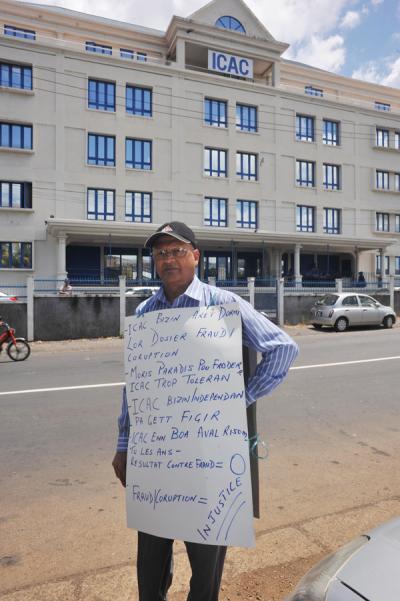 ICAC
- ICAC BIZIN ARET DORMI
LOR DOSIER FRAUD/
CORUPTION
- MORIS PARADIS POU FRODER
ICAC TROP TOLERAN
- ICAC BIZIN INDEPENDAN
PA GETT FIGIR
- ICAC ENN BOA AVAL RISOU
TU LES ANS -
RESULTAT CONTRE FRAUD = O
- FRAUD/CORUPTION =
INJUSTICE